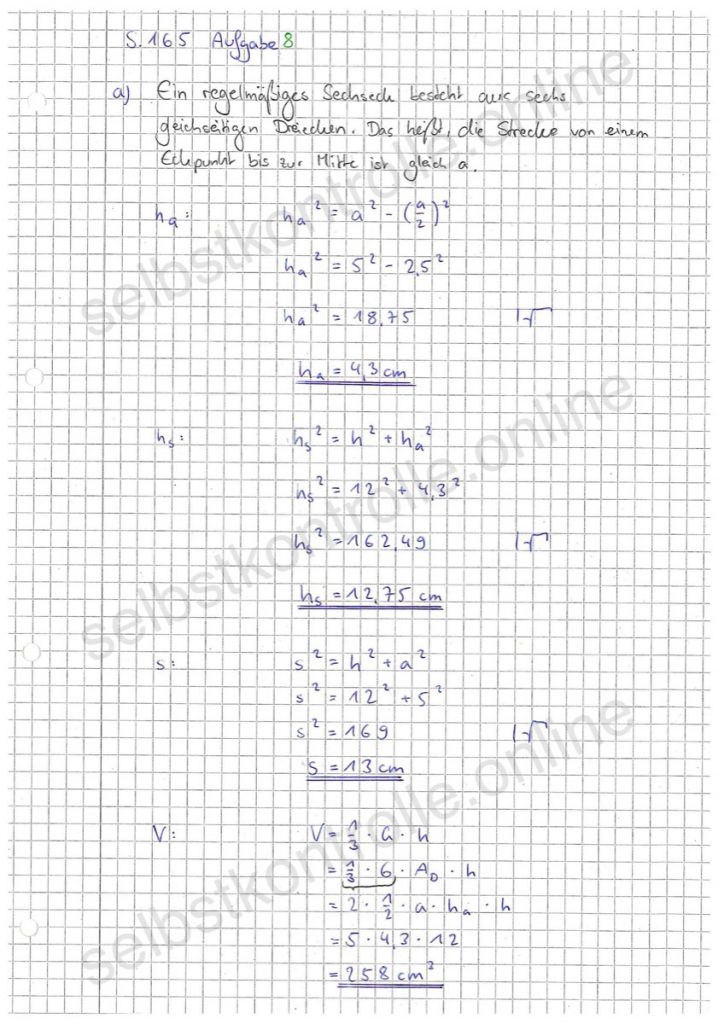 S. 165 Aufgabe 8
a) Ein regelmäßiges Sechseck besteht aus sechs
gleichseitigen Dreiecken. Das heißt, die Strecke von einem
Eckpunkt bis zur Mitte ist gleich a.
hₐ: hₐ² = a² - (a/2)²
hₐ² = 5² - 2,5²
hₐ² = 18,75 |√
hₐ = 4,3 cm
hₛ: hₛ² = h² + hₐ²
hₛ² = 12² + 4,3²
hₛ² = 162,49 |√
hₛ = 12,75 cm
s: s² = h² + a²
s² = 12² + 5²
s² = 169 |√
s = 13 cm
V: V = 1/3 · G · h
= 1/3 · 6 · A_D · h
= 2 · 1/2 · a · hₐ · h
= 5 · 4,3 · 12
= 258 cm³
selbstkontrolle.online
selbstkontrolle.online
selbstkontrolle.online